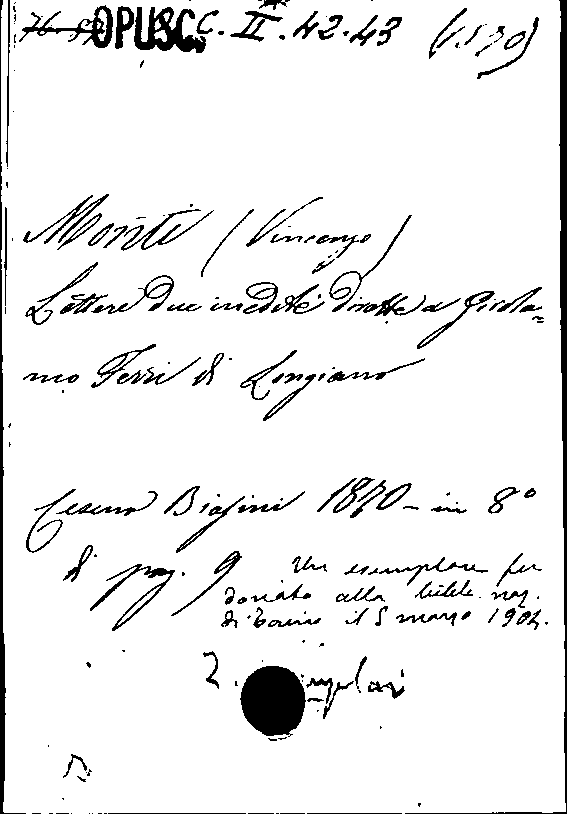 OPUSC. C. II. 42.43 (1570)
Monti (Vincenzo)
Lettere due inedite dirette a Girola=
mo Ferri di Longiano
Cesena Biasini 1870 - in 8º
di pag. 9 Un esemplare fu
donato alla bibl. naz.
di Torino il 5 marzo 1904.
2.